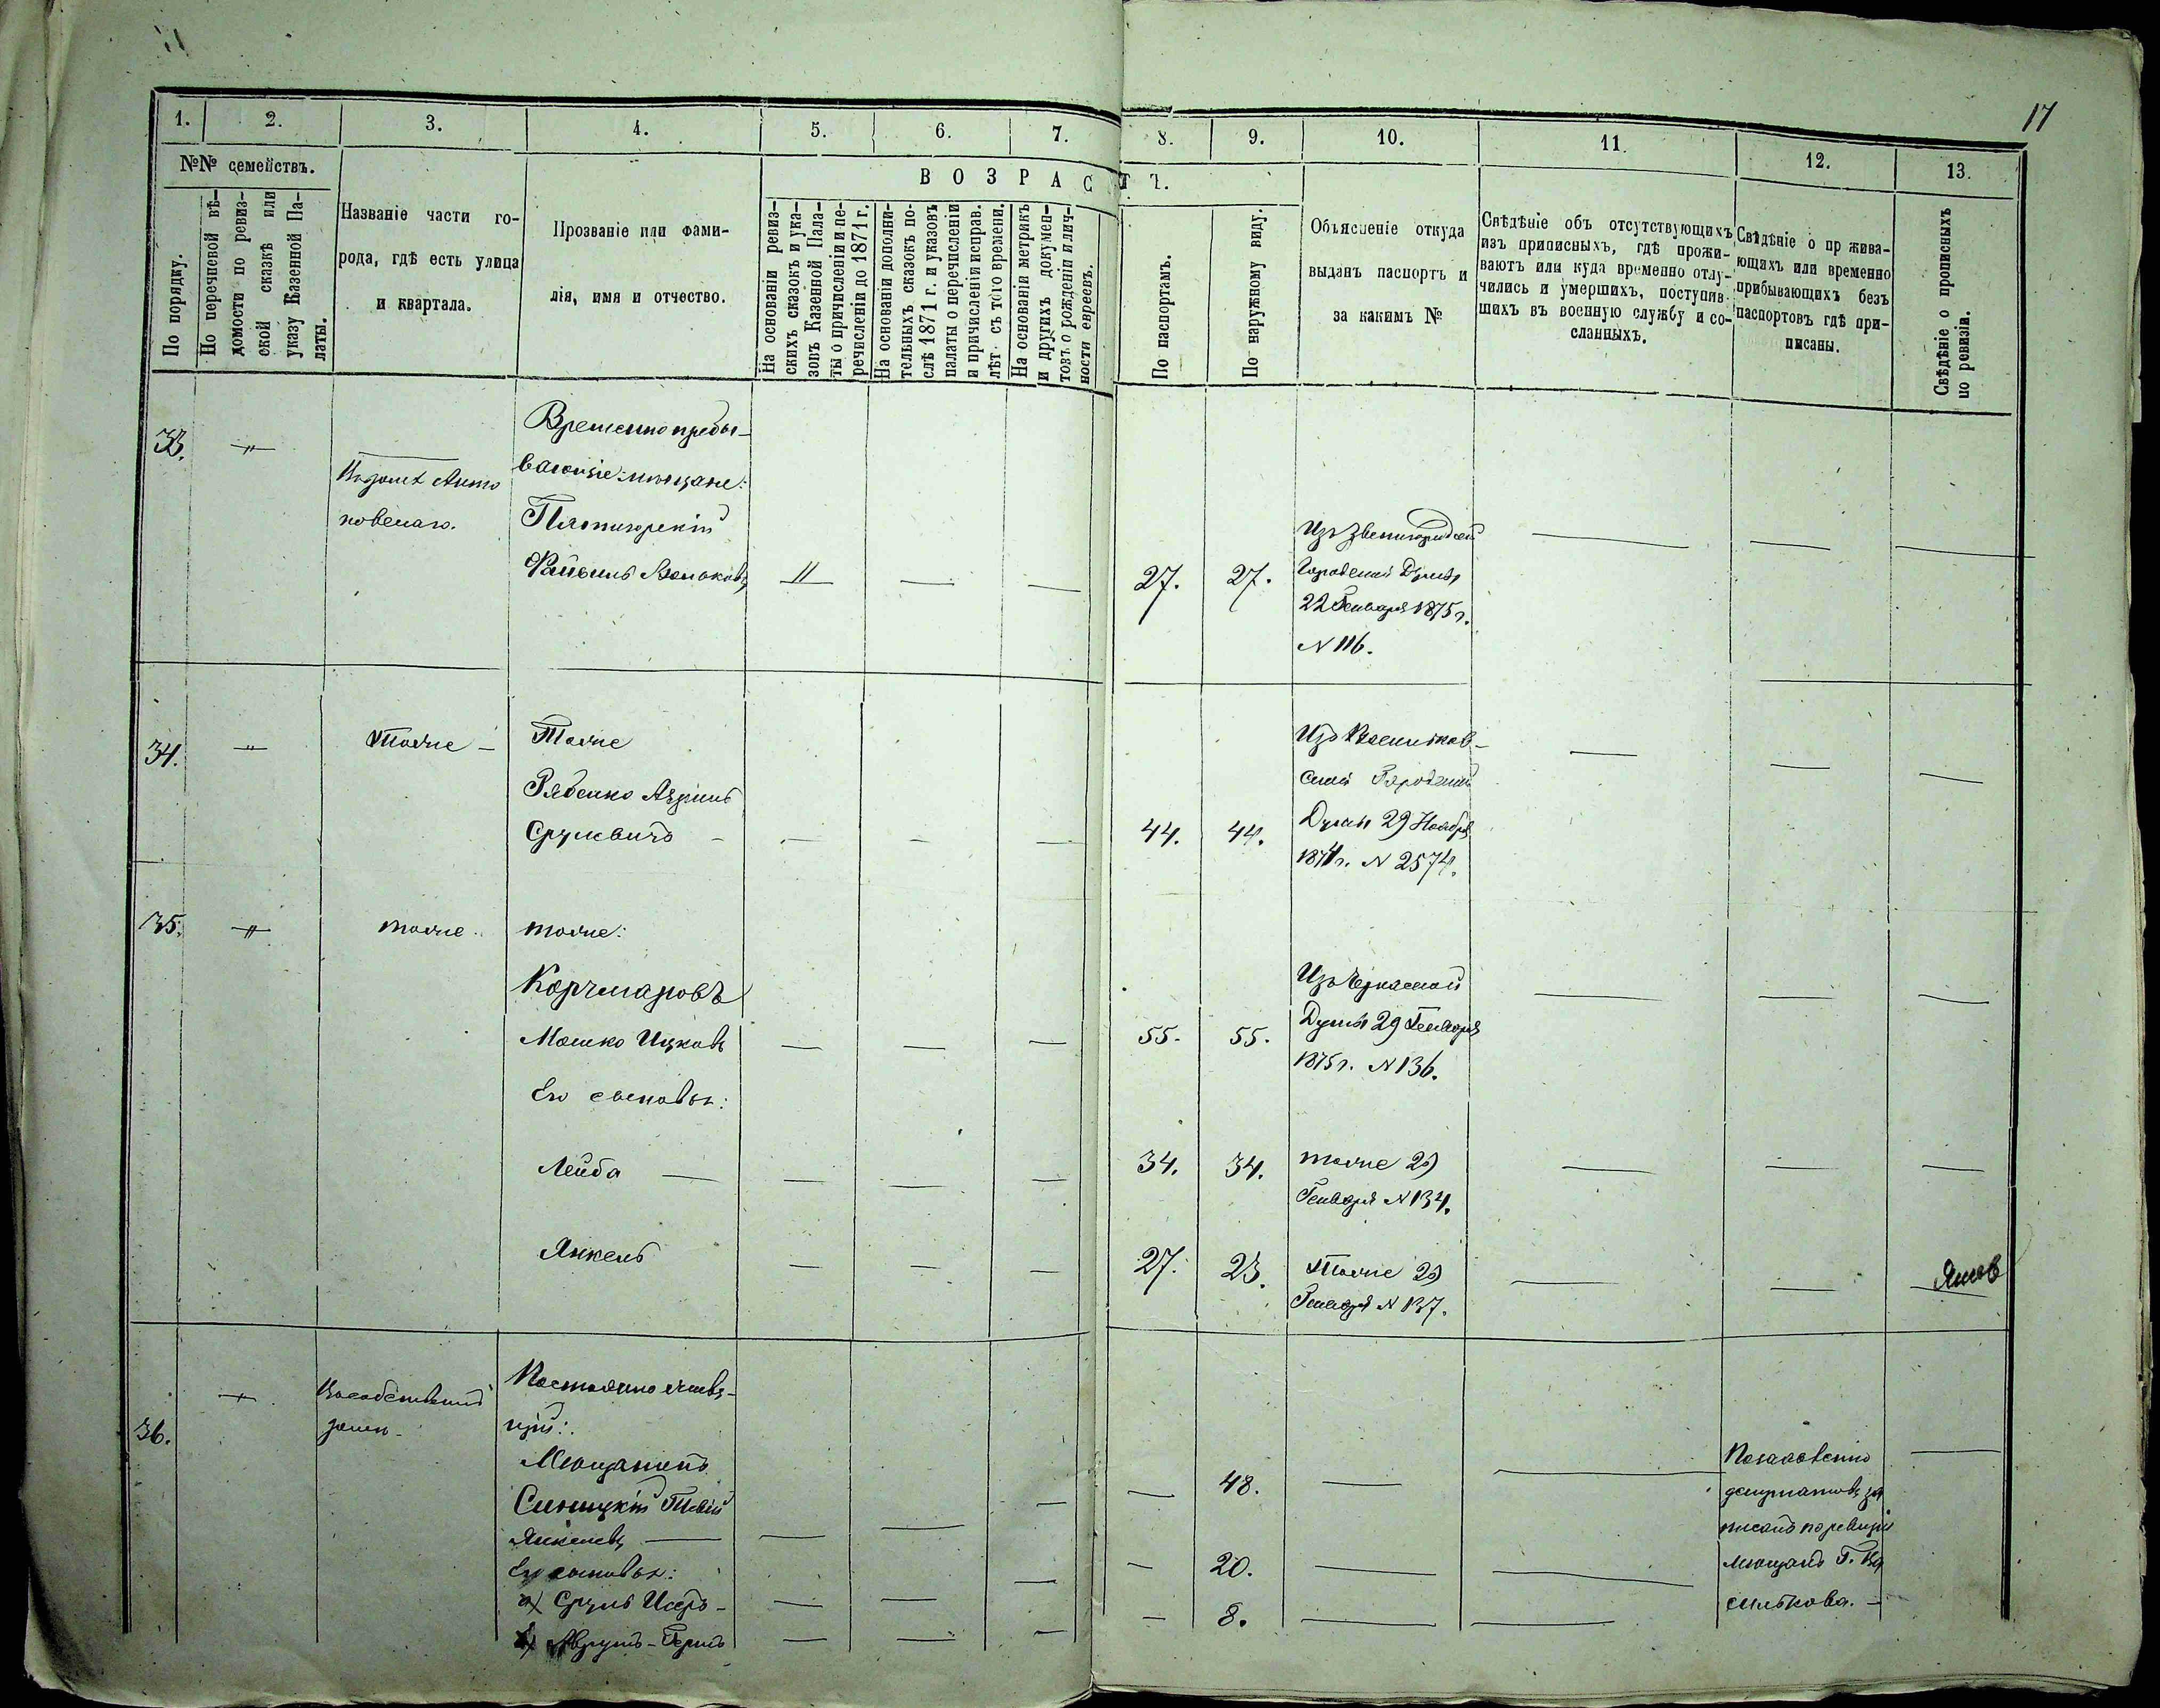 17
1. 2. 3. 4. 5. 6. 7. 8. 9. 10. 11. 12. 13.
№№ семействъ.
По порядку.
По перечневой вѣ-
домости по ревиз-
ской сказкѣ или
указу Казенной Па-
латы.
Названіе части го-
рода, гдѣ есть улица
и квартала.
Прозваніе или фами-
лія, имя и отчество.
ВОЗРАСТЪ.
На основаніи ревиз-
скихъ сказокъ и ука-
зовъ Казенной Пала-
ты о причисленіи и пе-
речисленіи до 1871 г.
На основаніи дополни-
тельныхъ сказокъ по-
слѣ 1871 г. и указовъ
палаты о перечисленіи
и причисленіи исправ.
лѣт. съ того времени.
На основаніи метрикъ
и другихъ докумен-
товъ о рожденіи и лич-
ности евреевъ.
По паспортамъ.
По наружному виду.
Объясненіе откуда
выданъ паспортъ и
за какимъ №
Свѣдѣніе объ отсутствующихъ
изъ приписныхъ, гдѣ прожи-
ваютъ или куда временно отлу-
чились и умершихъ, поступив-
шихъ въ военную службу и со-
сланныхъ.
Свѣдѣніе о пр жива-
ющихъ или временно
прибывающихъ безъ
паспортовъ гдѣ при-
писаны.
Свѣдѣніе о прописныхъ
по ревизіи.
33. — " —
Временно пребы-
вающіе мѣщане:
Пятигорскій
— " — — — 27. 27.
Изъ Звенигородской
Городской Думы
22 Генваря 1875 г.
N 116.
34. — " — Тоже — Тоже
Рябенко
Срулевичъ — — — — 44. 44.
Изъ Васильков-
ской Городской
Думы 29 Ноября
1874 г. N 2574.
35. — " — тоже тоже:
Корчмаровъ
Мошко Ицковъ — — — 55. 55.
Изъ Черкасской
Думы 29 Генваря
1875 г. N 136.
Его сыновья:
Лейба — — — — 34. 34. тоже 29
Генваря N 134.
Янкель — — — 27. 23. Тоже 29
Генваря N 137.
36. Въ собственномъ
домѣ
Постоянно живу-
щій:
Мѣщанинъ
Синицкій Товій
Янкелевъ — — — — — 48. — —
По
депутатовъ за
писанъ по ревизіи
мѣщанъ Г. Ва
силькова. —
Его сыновья:
а) Сруль — — — — — 20. — —
б) Аврумъ-Гершъ — — — — 8. — —